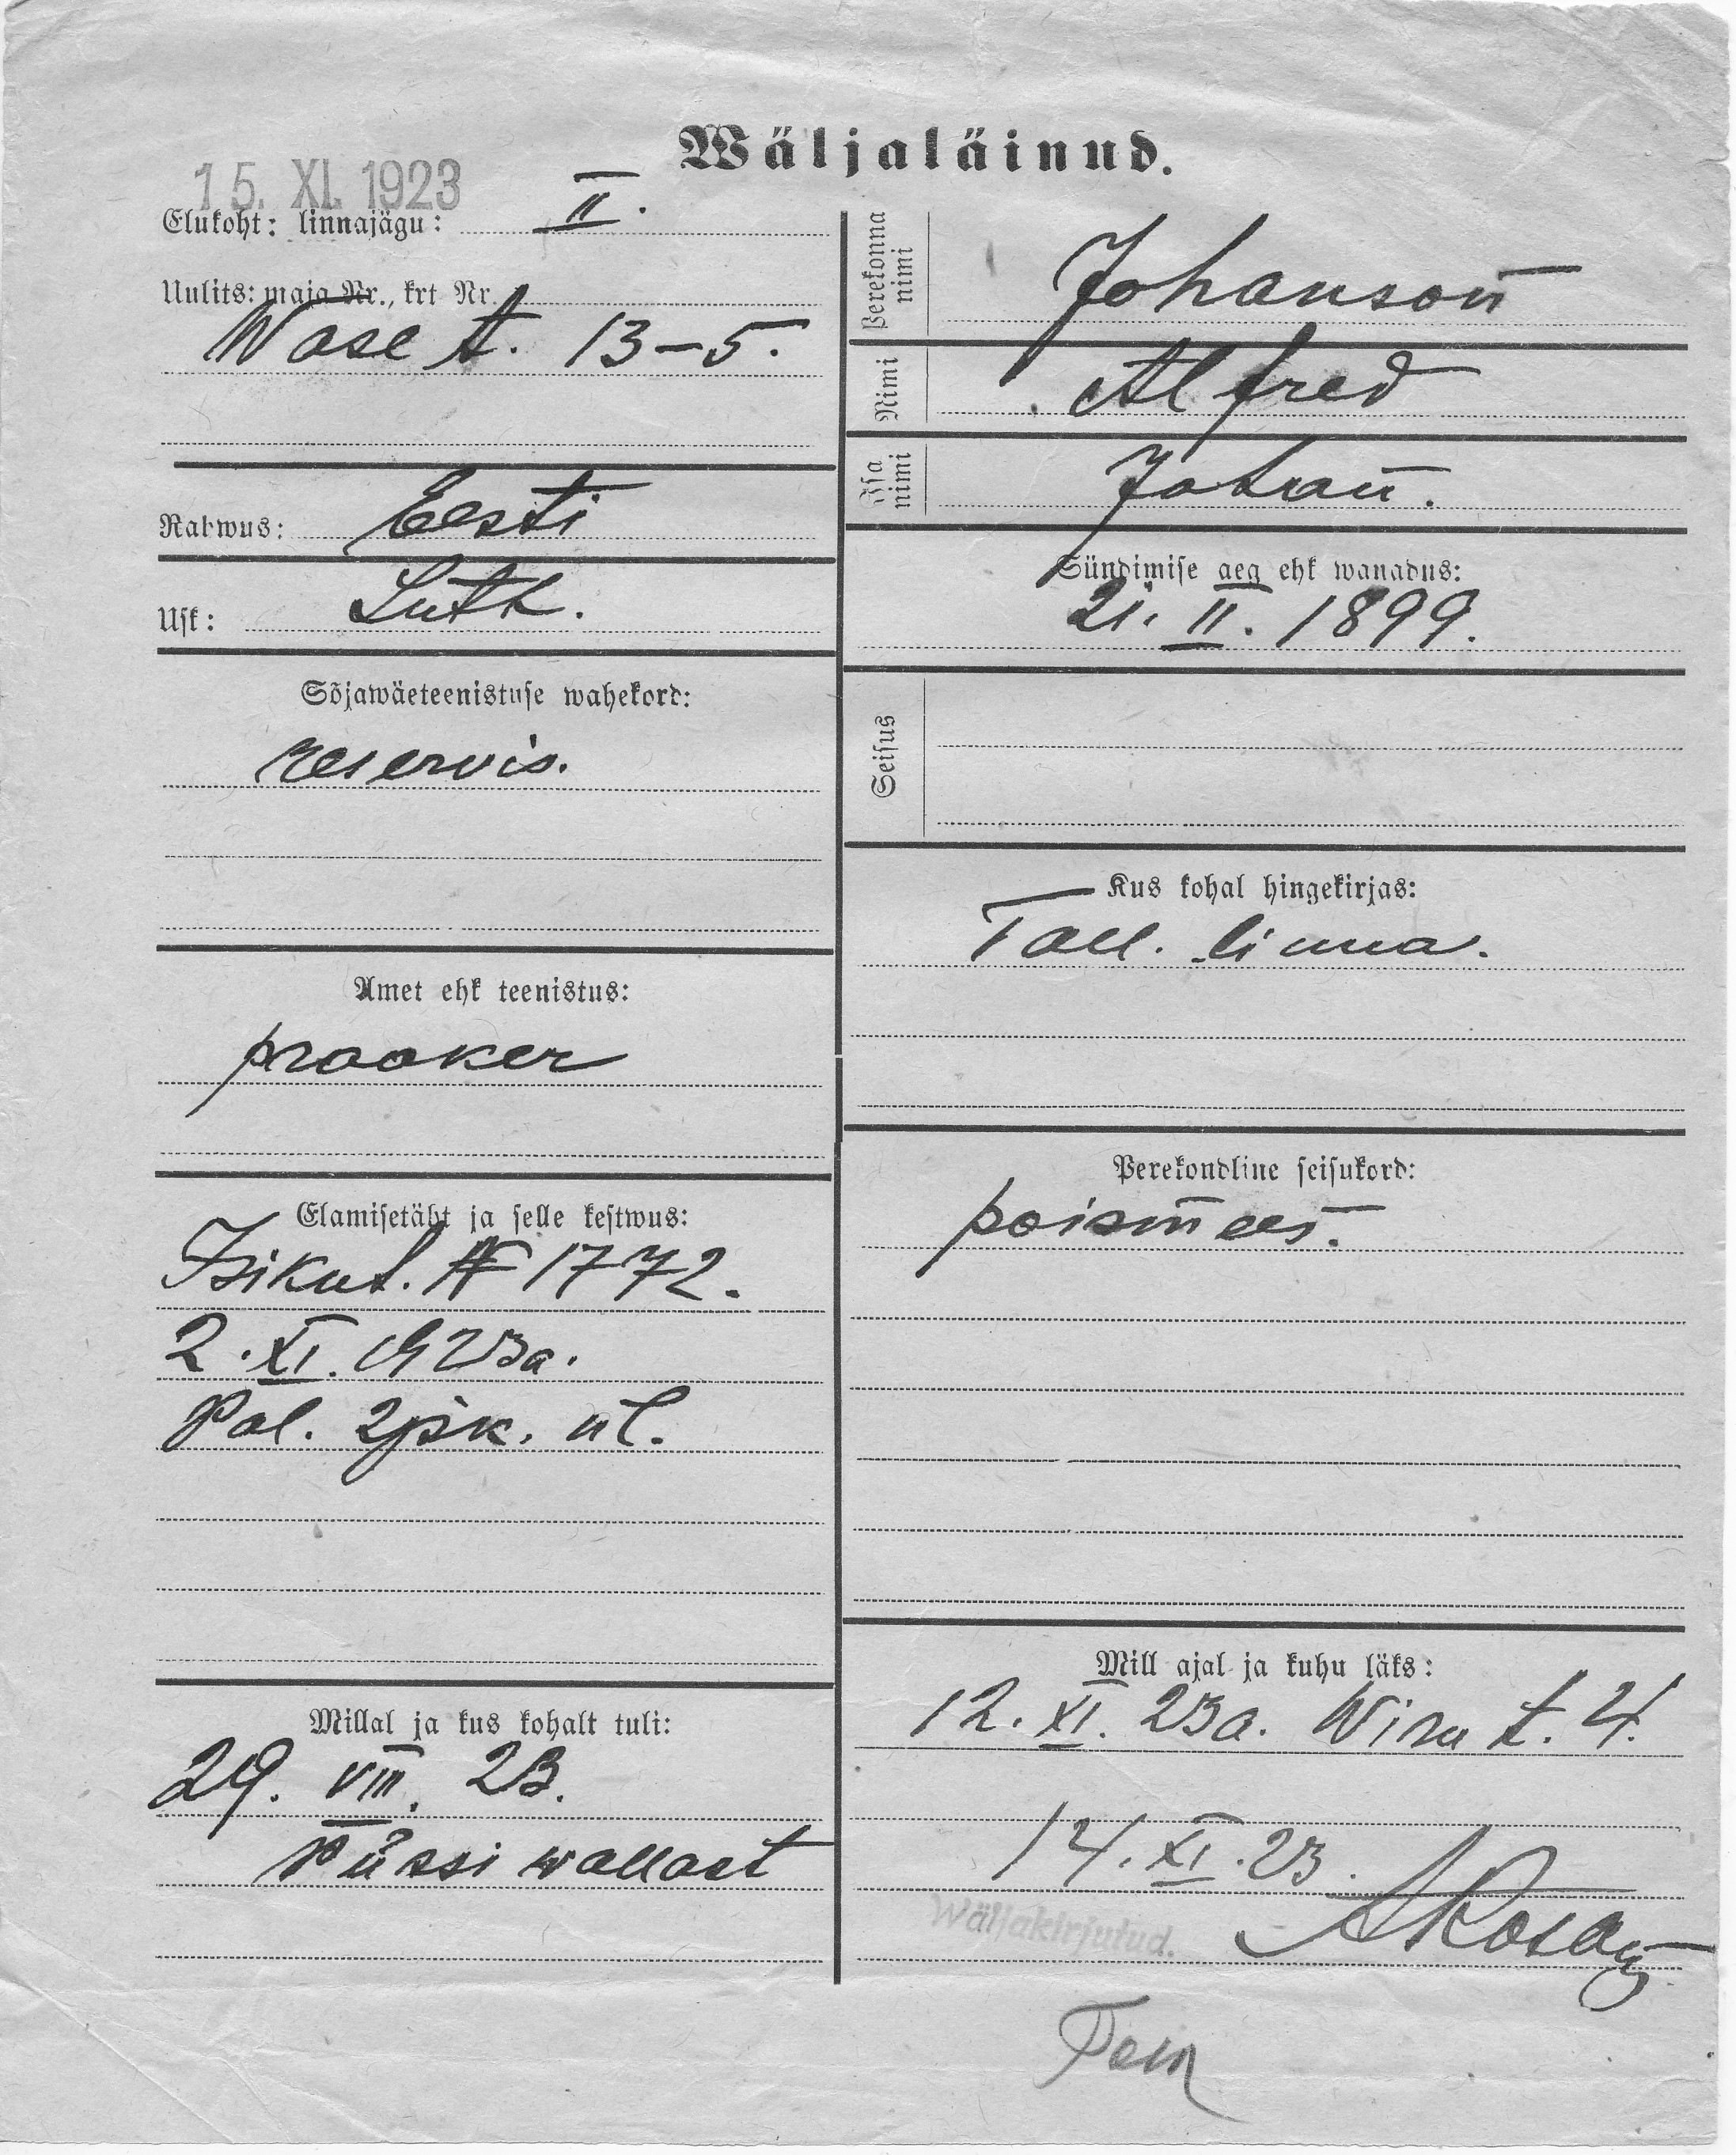 Wäljaläinud.
15. XI. 1923
Elukoht: linnajägu: II.
Uulits: maja Nr., krt Nr.
Wase t. 13-5.
Rahwus: Eesti
Usk: Luth.
Sõjawäeteenistuse wahekord:
reservis.
Amet ehk teenistus:
praaker
Elamisetäht ja selle kestwus:
Isikut. № 1772.
2. XI. 1923a.
Pol. 2jsk. ül.
Millal ja kus kohalt tuli:
29. VIII. 23.
Püssi wallast
Perekonna nimi
Johanson̄
Nimi
Alfred
Isa nimi
Johan̄.
Sündimise aeg ehk wanadus:
21. II. 1899.
Seisus
Kus kohal hingekirjas:
Tall. linna.
Perekondline seisukord:
poism̄ees.
Mill ajal ja kuhu läks:
12. XI. 23a. Wiru t. 4.
14. XI. 23.
Wäljakirjutud.